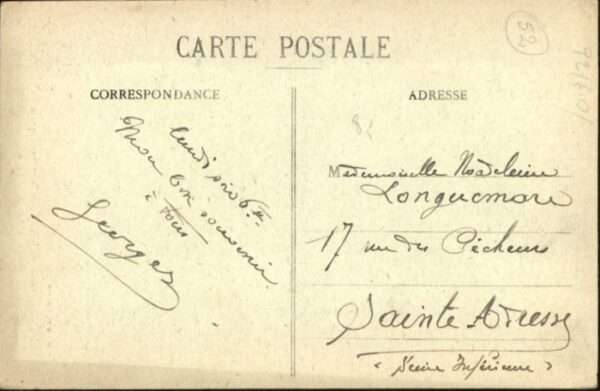 CARTE POSTALE
52
CORRESPONDANCE
ADRESSE
lundi soir 6 h
Mon bon souvenir
à tous
Georges
Mademoiselle Madeleine
Longuemare
17 rue des Pêcheurs
Sainte Adresse
(Seine Inférieure)